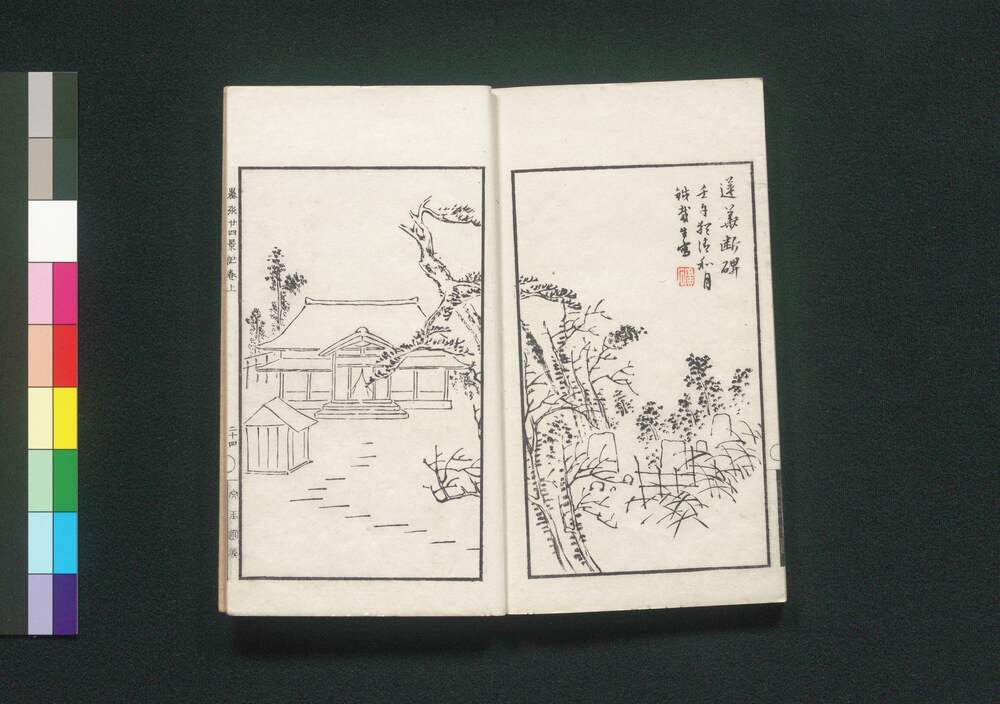 蓮華断碑
壬午清和月
鉄哉生寫
墨水廿四景記卷上
二十四